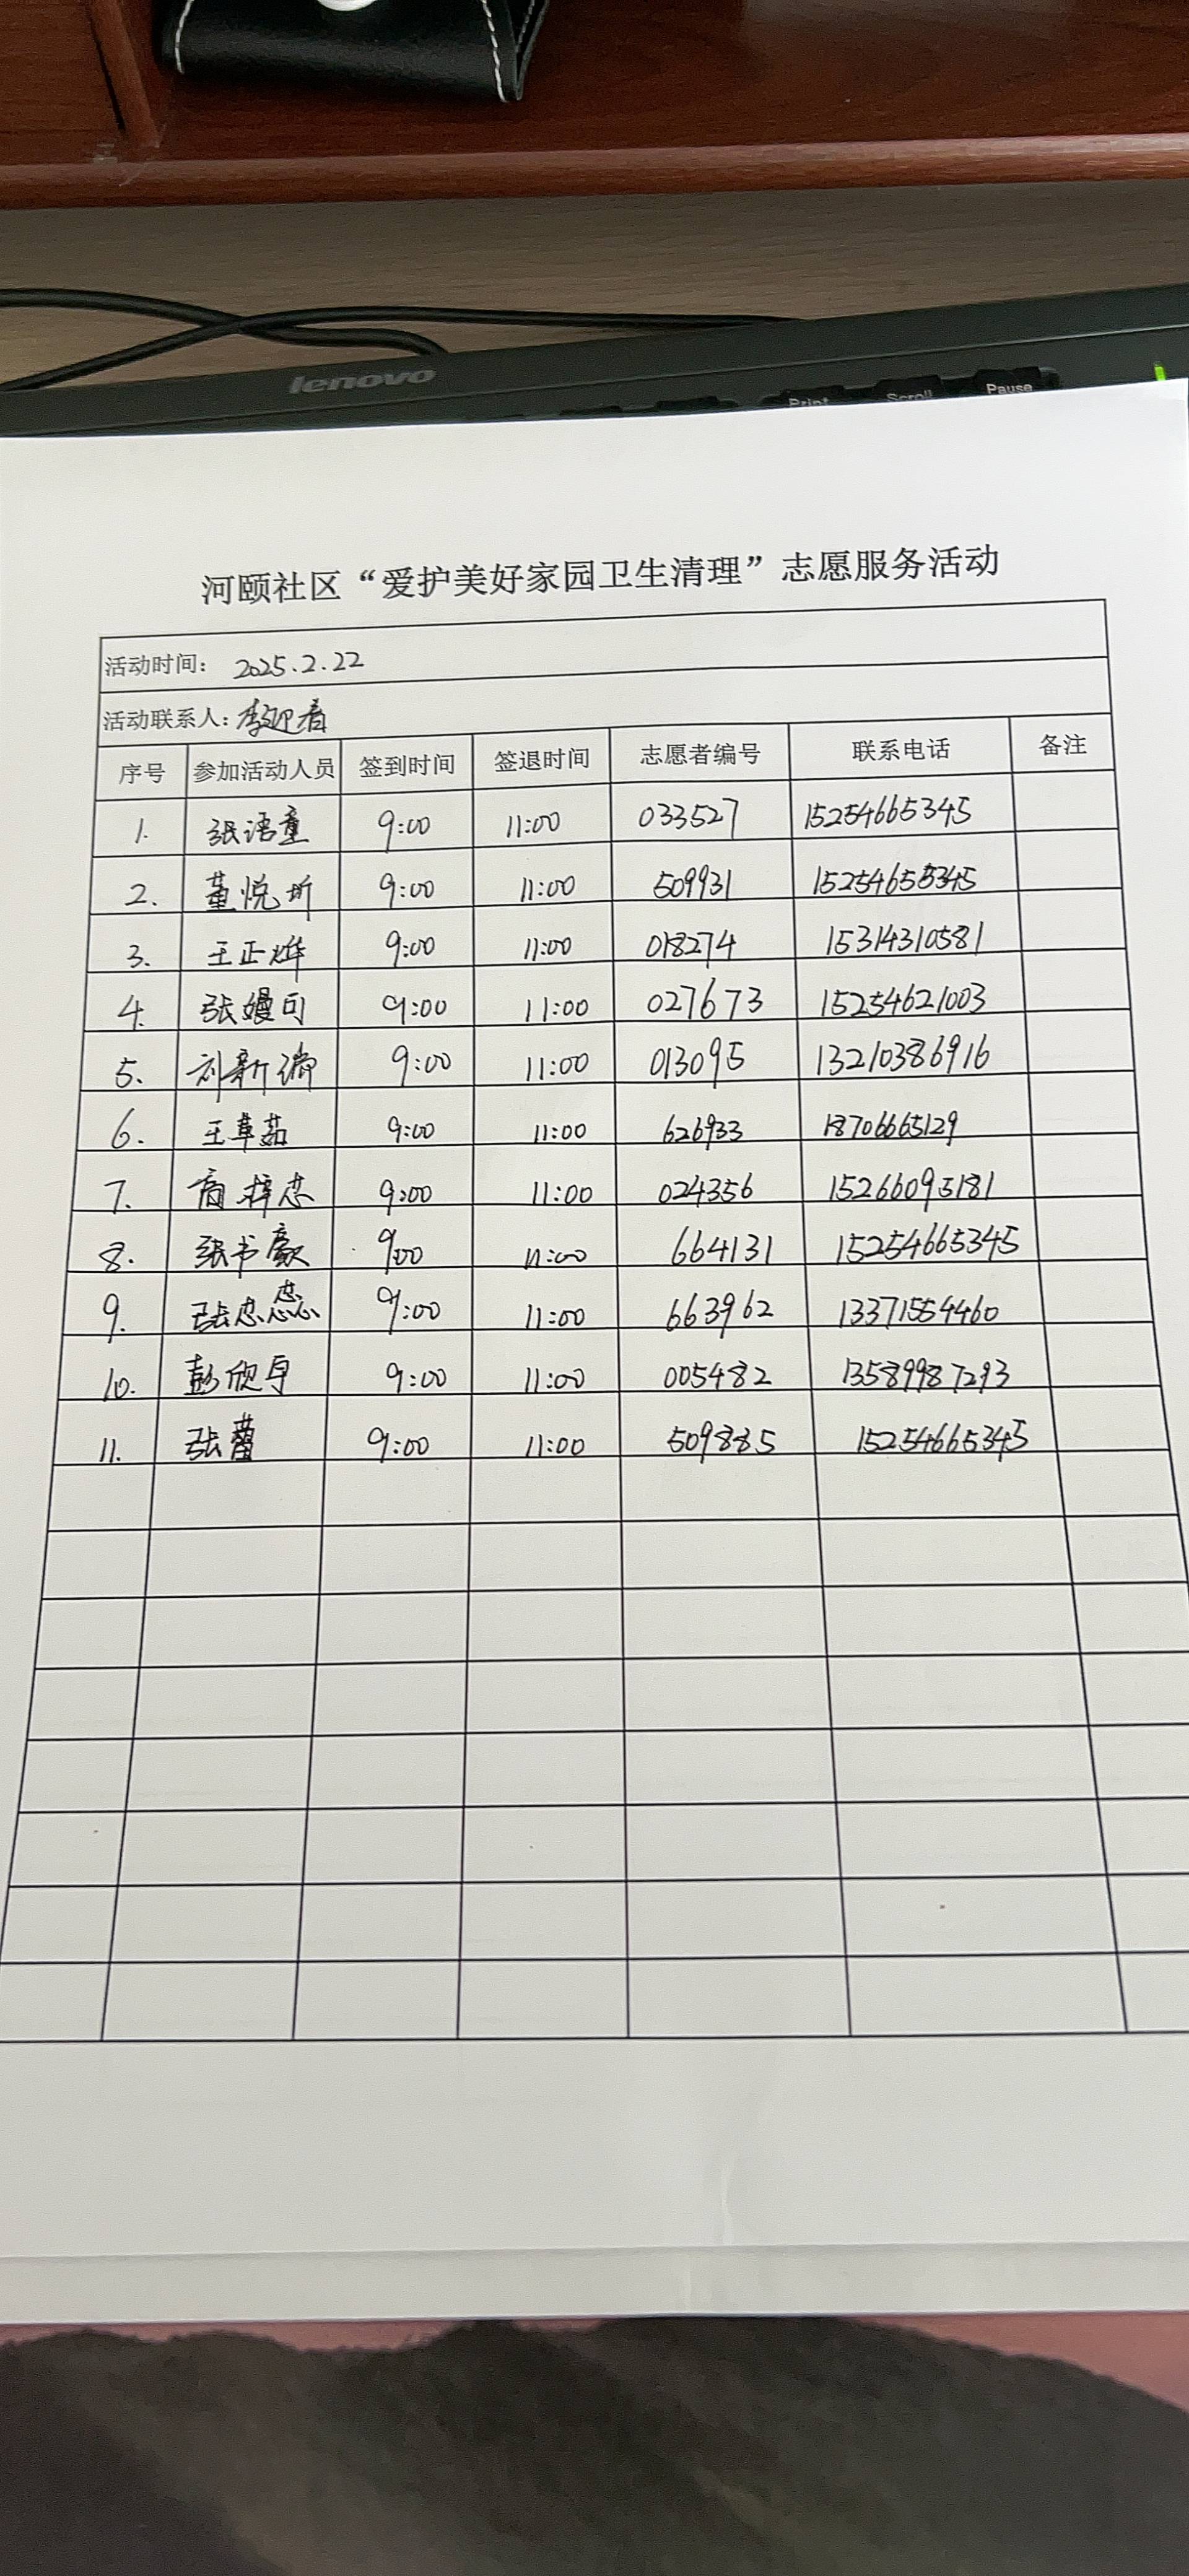 lenovo
Print Scroll Pause
河颐社区“爱护美好家园卫生清理”志愿服务活动
活动时间: 2025.2.22
活动联系人: 李迎春
序号 参加活动人员 签到时间 签退时间 志愿者编号 联系电话 备注
1. 张语童 9:00 11:00 033527 15254665345
2. 董悦圻 9:00 11:00 509931 15254655345
3. 王正烨 9:00 11:00 018274 15314310581
4. 张嫚可 9:00 11:00 027673 15254621003
5. 刘新 9:00 11:00 013095 13210386916
6. 王草茹 9:00 11:00 626933 18706665129
7. 商梓恋 9:00 11:00 024356 15266095181
8. 张书豪 9:00 11:00 664131 15254665345
9. 张 9:00 11:00 663962 13371554460
10. 彭欣 9:00 11:00 005482 13589987293
11. 张蕾 9:00 11:00 509885 15254665345